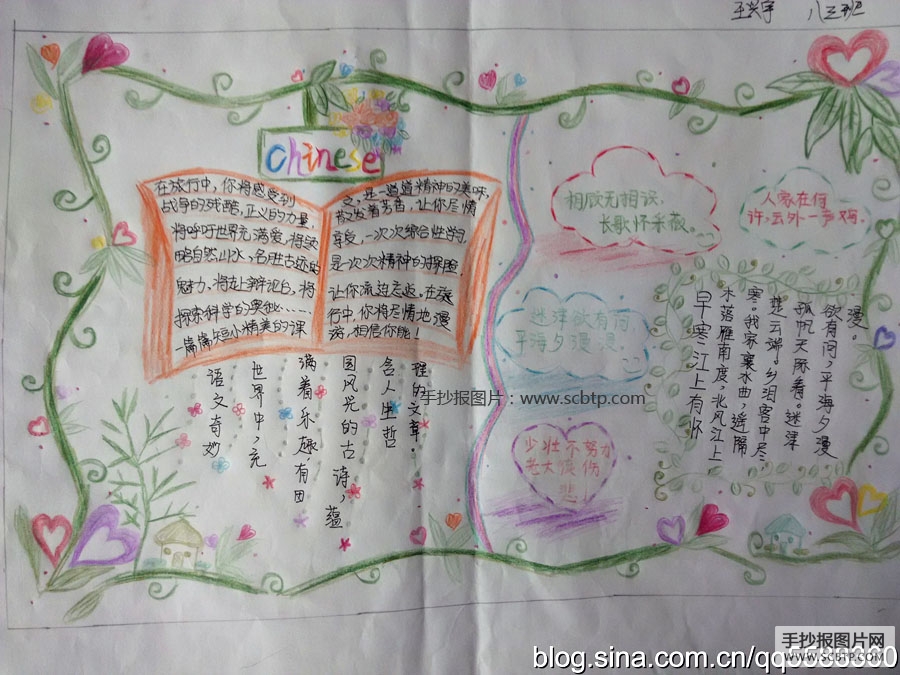 八三班
Chinese
在旅行中，你将感受到
战争的残酷，正义的力量，
将呼吁世界充满爱，将领
略自然山水，名胜古迹的
魅力，将赴上辩论台，将
探索科学的奥秘……
一篇篇短小精美的课
文，是一道道精神的美味，
散发着芳香，让你尽情
享受，一次次综合性学习，
是一次次精神的探险，
让你流连忘返。在旅
行中，你将尽情地遨
游，相信你能！
语文奇妙
世界中，充
满着乐趣，有田
园风光的古诗，蕴
含人生哲
理的文章。
手抄报图片：www.scbtp.com
相顾无相识，
长歌怀采薇。
人家在何
许，云外一声鸡。
迷津欲有问
平海夕漫漫
少壮不努力
老大徒伤
悲
早寒江上有怀
木落雁南度，北风江上
寒。我家襄水曲，遥隔
楚云端。乡泪客中尽
孤帆天际看。迷津
欲有问，平海夕漫
漫。
手抄报图片网
WWW.SCBTP.COM